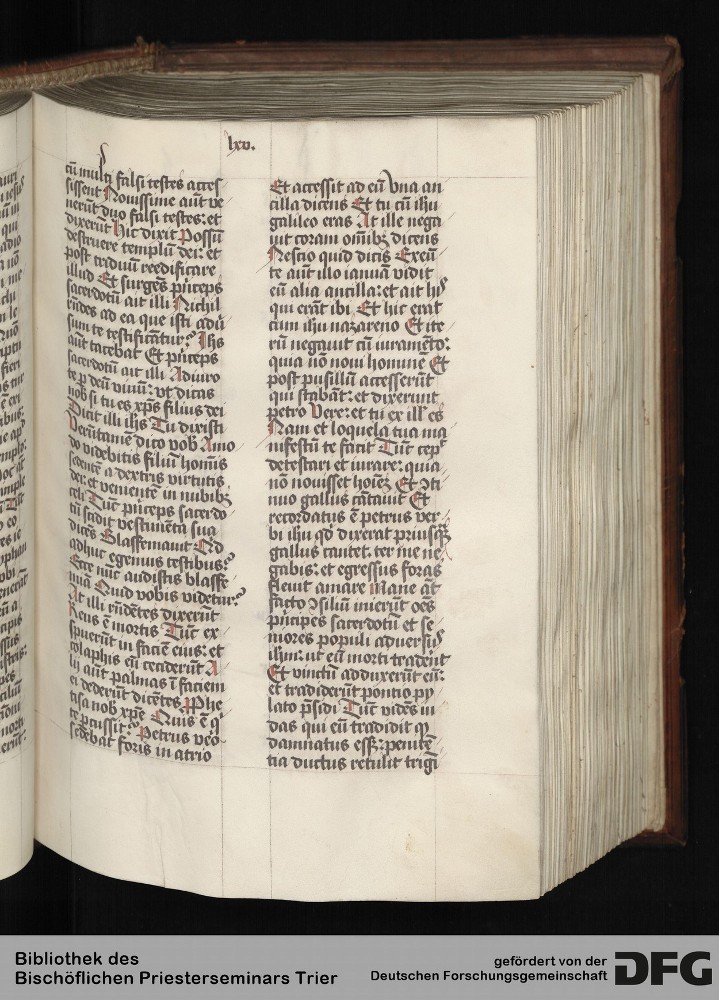 lxv.
cū multi falsi testes acces
sissent Nouissime aūt ve
nerūt duo falsi testes: et
dixerūt Hic dixit Possū
destruere templū dei: et
post triduū reedificare
illud Et surgēs prīceps
sacerdotū ait illi Nichil
rn̄des ad ea que isti adū
sum te testificātur? Ihs
aūt tacebat Et prīceps
sacerdotū ait illi Adiuro
te p deū viuū: vt dicas
nob si tu es xp̄s filius dei
Dicit illi ihs Tu dixisti
Verūtamē dico vob Amo
do videbitis filiū homīs
sedentē a dextris virtutis
dei: et venientē in nubibꝫ
celi Tūc prīceps sacerdo
tū scidit vestimēta sua
dicēs Blasfemauit Qd
adhuc egemus testibus?
Ecce nūc audistis blasfe
miā Quid vobis videtur?
At illi rn̄dētes dixerūt
Reus ē mortis Tūc ex
spuerūt in faciē eius: et
colaphis eū ceciderūt A
lij aūt palmas ī faciem
ei dederūt dicētes Pphe
tisa nob xp̄e Quis ē q
te pcussit? Petrus vēo
sedebat foris in atrio
Et accessit ad eū vna an
cilla dicens Et tu cū ihu
galileo eras At ille nega
uit coram om̄ibꝫ dicens
Nescio quid dicis Exeū
te aūt illo ianuā vidit
eū alia ancilla: et ait hijs
qui erāt ibi Et hic erat
cum ihu nazareno Et ite
rū negauit cū iuramēto:
quia nō noui hominē Et
post pusillū accesserūt
qui stabāt: et dixerunt
petro Vere: et tu ex ill' es
Nam et loquela tua ma
nifestū te facit Tūc cep
detestari et iurare: quia
nō nouisset hoiēꝫ Et ↄti
nuo gallus cātauit Et
recordatus ē petrus ver
bi ihu qd dixerat priusqꝫ
gallus cantet: ter me ne
gabis: et egressus foras
fleuit amare Mane āt
facto ↄsiliū inierūt oēs
prīcipes sacerdotū et se
niores populi aduersus
ihm: ut eū morti traderēt
Et vinctū adduxerūt eū:
et tradiderūt pontio py
lato p̄sidi Tūc vidēs iu
das qui eū tradidit qꝫ
damnatus esset: penitē
tia ductus retulit trigī
Bibliothek des
Bischöflichen Priesterseminars Trier
gefördert von der
Deutschen Forschungsgemeinschaft
DFG